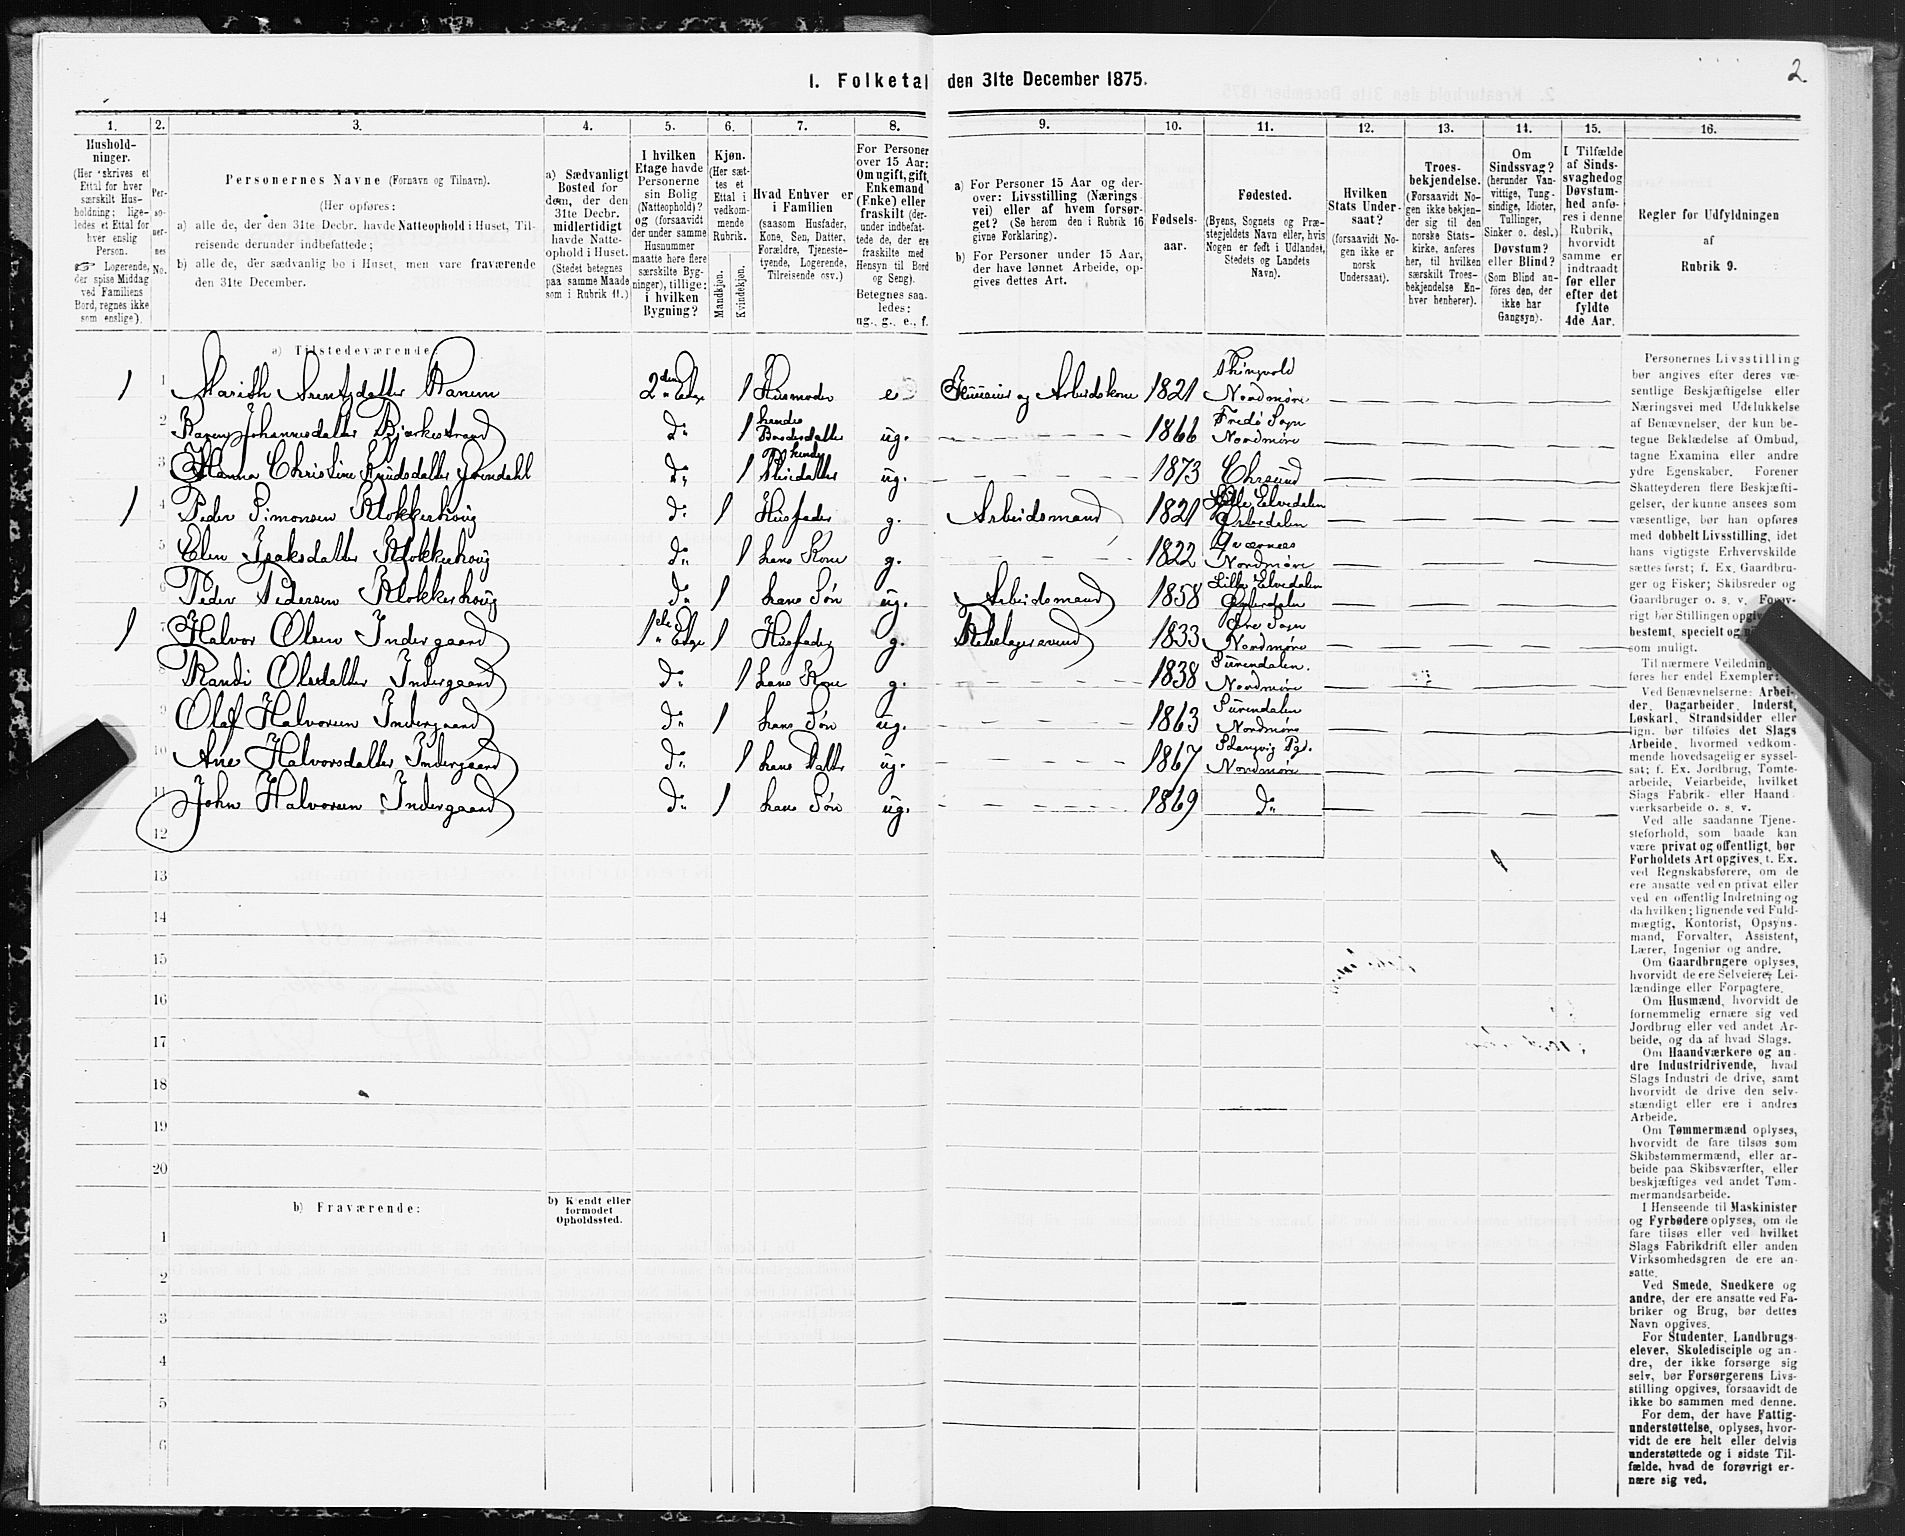 2.
I. Folketal den 31te December 1875.
1. 2. 3. 4. 5. 6. 7. 8. 9. 10. 11. 12. 13. 14. 15. 16.
Hushold-
ninger.
(Her skrives et
Ettal for hver
særskilt Hus-
holdning; lige-
ledes et Ettal for
hver enslig
Person.
☞ Logerende,
der spise Middag
ved Familiens
Bord, regnes ikke
som enslige).
Per-
so-
ner-
nes
No.
Personernes Navne (Fornavn og Tilnavn).
(Her opføres:
a) alle de, der den 31te Decbr. havde Natteophold i Huset, Til-
reisende derunder indbefattede;
b) alle de, der sædvanlig bo i Huset, men vare fraværende
den 31te December.
a) Sædvanligt
Bosted for
dem, der den
31te Decbr.
midlertidigt
havde Natte-
ophold i Huset.
(Stedet betegnes
paa samme Maade
som i Rubrik 11.)
I hvilken
Etage havde
Personerne
sin Bolig
(Natteophold)?
og (forsaavidt
der under samme
Husnummer
maatte høre flere
særskilte Byg-
ninger), tillige:
i hvilken
Bygning?
Kjøn.
(Her sæt-
tes et
Ettal i
vedkom-
mende
Rubrik.
Mandkjøn.
Kvindekjøn.
Hvad Enhver er
i Familien
(saasom Husfader,
Kone, Søn, Datter,
Forældre, Tjeneste-
tyende, Logerende,
Tilreisende osv.)
For Personer
over 15 Aar:
Om ugift, gift,
Enkemand
(Enke) eller
fraskilt (der-
under indbefat-
tede de, der ere
fraskilte med
Hensyn til Bord
og Seng).
Betegnes saa-
ledes:
ug., g., e., f.
a) For Personer 15 Aar og der-
over: Livsstilling (Nærings-
vei) eller af hvem forsør-
get? (Se herom den i Rubrik 16
givne Forklaring).
b) For Personer under 15 Aar,
der have lønnet Arbeide, op-
gives dettes Art.
Fødsels-
aar.
Fødested.
(Byens, Sognets og Præ-
stegjeldets Navn eller, hvis
Nogen er født i Udlandet,
Stedets og Landets
Navn).
Hvilken
Stats Under-
saat?
(forsaavidt No-
gen ikke er
norsk
Undersaat).
Troes-
bekjendelse.
(Forsaavidt No-
gen ikke bekjen-
der sig til den
norske Stats-
kirke, anføres
her, til hvilken
særskilt Troes-
bekjendelse En-
hver henhører).
Om
Sindssvag?
(herunder Van-
vittige, Tung-
sindige, Idioter,
Tullinger,
Sinker o. desl.)
Døvstum?
eller Blind?
(Som Blind an-
føres den, der
ikke har
Gangsyn).
I Tilfælde
af Sinds-
svaghed og
Døvstum-
hed anfø-
res i denne
Rubrik,
hvorvidt
samme er
indtraadt
før eller
efter det
fyldte
4de Aar.
Regler for Udfyldningen
af
Rubrik 9.
a) Tilstedeværende:
1 1 Marith Arentsdatter Ranem 2den Etage 1 Husmoder e og Arbeidskone 1821 Thingvold Nordmøre
2 Karen Johannesdatter Bjerkestrand do 1 hendes Datterdatter ug. 1866 Fredø Sogn Nordmøre
3 Hanna Christine Knudsdatter do 1 ug. 1873 Chrsund
1 4 Peder Simonsen Klokkerhoug do 1 Husfader g. Arbeidsmand 1821 Lille Elvedalen Østerdalen
5 Elen Isaksdatter Klokkerhoug do 1 hans Kone g. 1822 Nordmøre
6 Peder Pedersen Klokkerhoug do 1 hans Søn ug. Arbeidsmand 1858 Lille Elvedalen Østerdalen
1 7 Halvor Olsen Indergaard 1ste Etage 1 Husfader g. 1833 Øre Sogn Nordmøre
8 Randi Olsdatter Indergaard do 1 hans Kone g. 1838 Surendalen. Nordmøre
9 Olaf Halvorsen Indergaard do 1 hans Søn ug. 1863 Surendalen Nordmøre
10 Ane Halvorsdatter Indergaard do 1 hans Datter ug. 1867 Stangvig Pgd. Nordmøre
11 John Halvorsen Indergaard do 1 hans Søn ug. 1869 do
12
13
14
15
16
17
18
19
20
b) Fraværende:
b) Kjendt eller
formodet
Opholdssted.
1
2
3
4
5
6
Personernes Livsstilling
bør angives efter deres væ-
sentlige Beskjæftigelse eller
Næringsvei med Udelukkelse
af Benævnelser, der kun be-
tegne Beklædelse af Ombud,
tagne Examina eller andre
ydre Egenskaber. Forener
Skatteyderen flere Beskjæfti-
gelser, der kunne ansees som
væsentlige, bør han opføres
med dobbelt Livsstilling, idet
hans vigtigste Erhvervskilde
sættes først; f. Ex. Gaardbru-
ger og Fisker; Skibsreder og
Gaardbruger o. s. v. Forøv-
rigt bør Stillingen opgives
bestemt, specielt og
som muligt.
Til nærmere Veiledning
føres her endel Exempler:
Ved Benævnelserne: Arbei-
der, Dagarbeider, Inderst,
Løskarl, Strandsidder eller
lign. bør tilføies det Slags
Arbeide, hvormed vedkom-
mende hovedsagelig er syssel-
sat; f. Ex. Jordbrug, Tomte-
arbeide, Veiarbeide, hvilket
Slags Fabrik- eller Haand-
værksarbeide o. s. v.
Ved alle saadanne Tjene-
steforhold, som baade kan
være privat og offentligt, bør
Forholdets Art opgives, t. Ex.
ved Regnskabsførere, om de
ere ansatte ved en privat eller
ved en offentlig Indretning og
da hvilken; lignende ved Fuld-
mægtig, Kontorist, Opsyns-
mand, Forvalter, Assistent,
Lærer, Ingeniør og andre.
Om Gaardbrugere oplyses,
hvorvidt de ere Selveiere, Lei-
lændinge eller Forpagtere.
Om Husmænd, hvorvidt de
fornemmelig ernære sig ved
Jordbrug eller ved andet Ar-
beide, og da af hvad Slags.
Om Haandværkere og an-
dre Industridrivende, hvad
Slags Industri de drive, samt
hvorvidt de drive den selv-
stændigt eller ere i andres
Arbeide.
Om Tømmermænd oplyses,
hvorvidt de fare tilsøs som
Skibstømmermænd, eller ar-
beide paa Skibsværfter, eller
beskjæftiges ved andet Tøm-
mermandsarbeide.
I Henseende til Maskinister
og Fyrbødere oplyses, om de
fare tilsøs eller ved hvilket
Slags Fabrikdrift eller anden
Virksomhedsgren de ere an-
satte.
Ved Smede, Snedkere og
andre, der ere ansatte ved Fa-
briker og Brug, bør dettes
Navn opgives.
For Studenter, Landbrugs-
elever, Skoledisciple og an-
dre, der ikke forsørge sig
selv, bør Forsørgerens Livs-
stilling opgives, forsaavidt de
ikke bo sammen med denne.
For dem, der have Fattig-
understøttelse, oplyses, hvor-
vidt de ere helt eller delvis
understøttede og i sidste Til-
fælde, hvad de forøvrigt er-
nære sig ved.